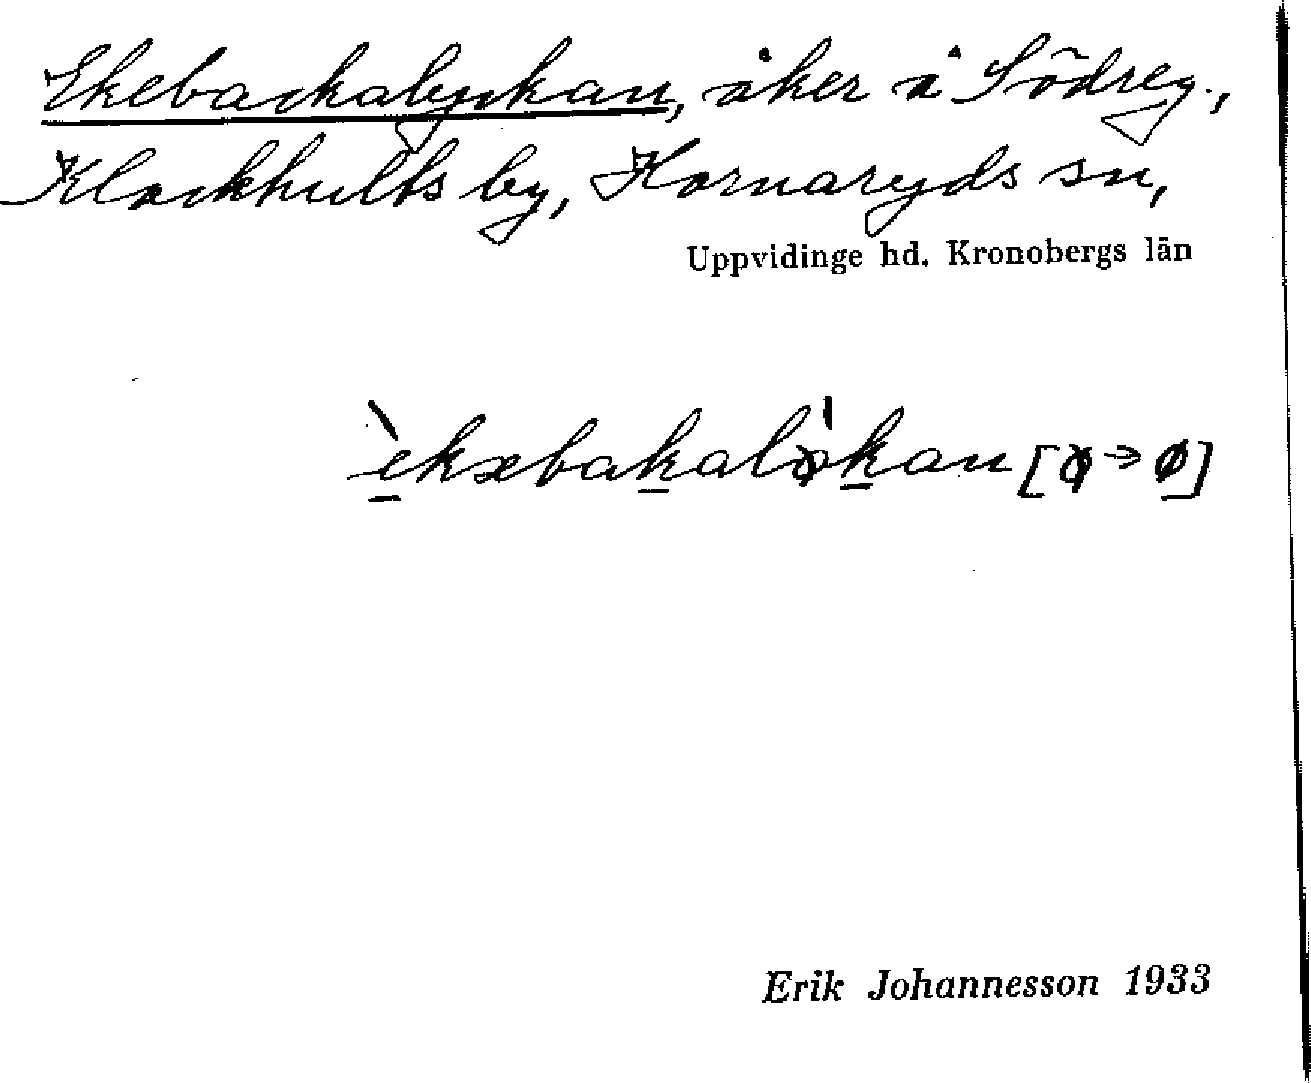 Ekebackalyckan, åker å Södreg.,
Klockhults by, Hornaryds sn,
Uppvidinge hd. Kronobergs län
èkæbakaløkan [ø → ø]
Erik Johannesson 1933